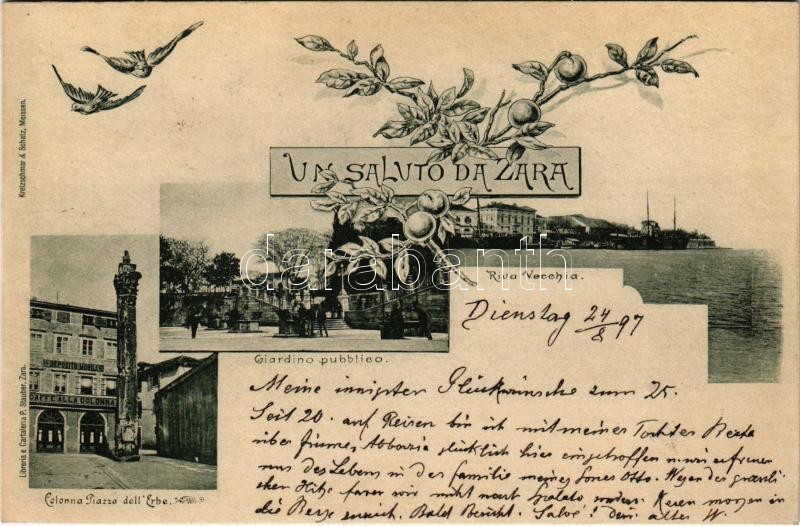 UN SALUTO DA ZARA
Kretzschmar & Schatz, Meissen.
Riva Vecchia.
Dienstag 24/8 97
Giardino pubblico.
DEPOSITO MOBILI
CAFFÈ ALLA COLONNA
Libreria e Cartoleria P. Stauber, Zara.
Colonna Piazza dell'Erbe.
Meine innigsten Glückwünsche zum 25.
Seit 20. auf Reisen bin ich mit meiner Tochter
über Fiume, Abbazia glücklich hier eingetroffen
uns des Lebens in der Familie meines Sones Otto. Wegen der
Hitze nicht nach Spalato morgen in
die Berge zurück. Bald Bericht. Salve! dein alter W.
darabanth